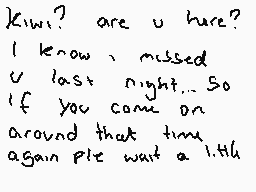 Kiwi? are u here?
I know i missed
u last night... So
if you come on
around that time
again ple wait a little